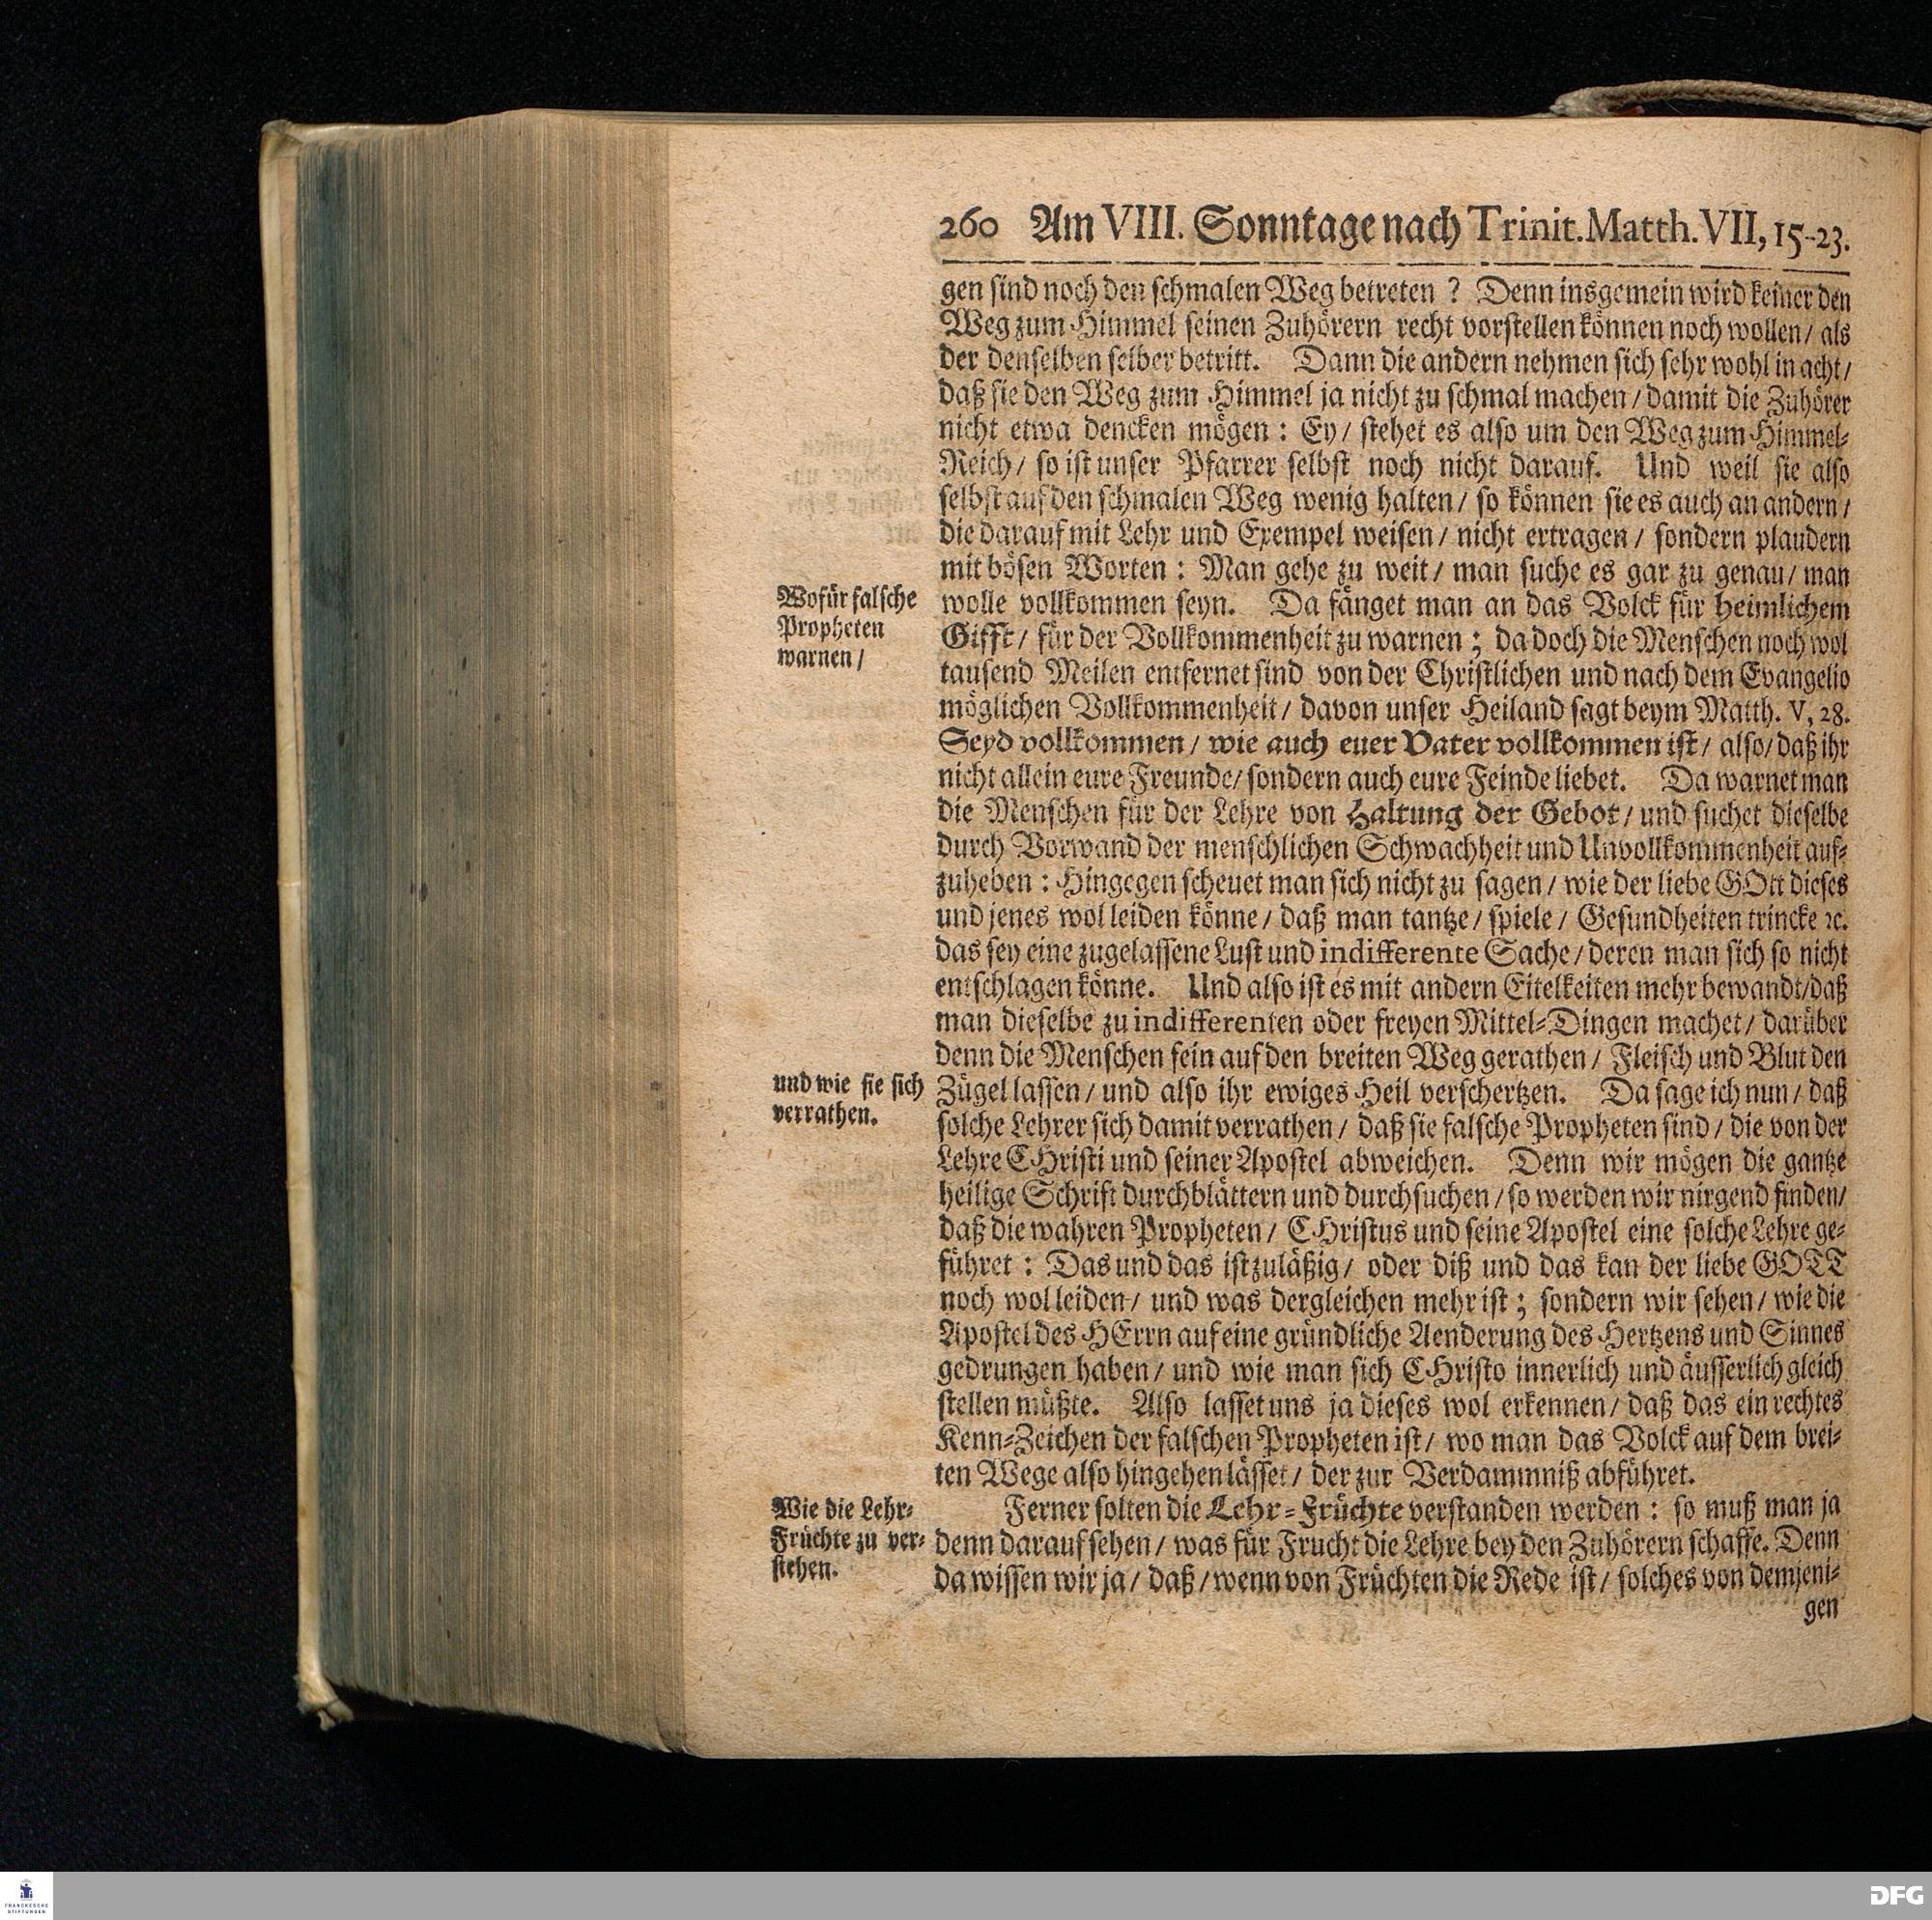 260 Am VIII. Sonntage nach Trinit. Matth. VII, 15-23.
gen sind noch den schmalen Weg betreten? Denn insgemein wird keiner den
Weg zum Himmel seinen Zuhörern recht vorstellen können noch wollen/ als
der denselben selber betritt. Dann die andern nehmen sich sehr wohl in acht/
daß sie den Weg zum Himmel ja nicht zu schmal machen/ damit die Zuhörer
nicht etwa dencken mögen: Ey/ stehet es also um den Weg zum Himmel-
Reich/ so ist unser Pfarrer selbst noch nicht darauf. Und weil sie also
selbst auf den schmalen Weg wenig halten/ so können sie es auch an andern/
die darauf mit Lehr und Exempel weisen/ nicht ertragen/ sondern plaudern
mit bösen Worten: Man gehe zu weit/ man suche es gar zu genau/ man
Wofür falsche
Propheten
warnen/
wolle vollkommen seyn. Da fänget man an das Volck für heimlichem
Gifft/ für der Vollkommenheit zu warnen; da doch die Menschen noch wol
tausend Meilen entfernet sind von der Christlichen und nach dem Evangelio
möglichen Vollkommenheit/ davon unser Heiland sagt beym Matth. V, 28.
Seyd vollkommen/ wie auch euer Vater vollkommen ist/ also/ daß ihr
nicht allein eure Freunde/ sondern auch eure Feinde liebet. Da warnet man
die Menschen für der Lehre von Haltung der Gebot/ und suchet dieselbe
durch Vorwand der menschlichen Schwachheit und Unvollkommenheit auf-
zuheben: Hingegen scheuet man sich nicht zu sagen/ wie der liebe GOtt dieses
und jenes wol leiden könne/ daß man tantze/ spiele/ Gesundheiten trincke ꝛc.
das sey eine zugelassene Lust und indifferente Sache/ deren man sich so nicht
entschlagen könne. Und also ist es mit andern Eitelkeiten mehr bewandt/ daß
man dieselbe zu indifferenten oder freyen Mittel-Dingen machet/ darüber
denn die Menschen fein auf den breiten Weg gerathen/ Fleisch und Blut den
und wie sie sich
verrathen.
Zügel lassen/ und also ihr ewiges Heil verschertzen. Da sage ich nun/ daß
solche Lehrer sich damit verrathen/ daß sie falsche Propheten sind/ die von der
Lehre CHristi und seiner Apostel abweichen. Denn wir mögen die gantze
heilige Schrift durchblättern und durchsuchen/ so werden wir nirgend finden/
daß die wahren Propheten/ CHristus und seine Apostel eine solche Lehre ge-
führet: Das und das ist zuläßig/ oder diß und das kan der liebe GOTT
noch wol leiden/ und was dergleichen mehr ist; sondern wir sehen/ wie die
Apostel des HErrn auf eine gründliche Aenderung des Hertzens und Sinnes
gedrungen haben/ und wie man sich CHristo innerlich und äusserlich gleich
stellen müßte. Also lasset uns ja dieses wol erkennen/ daß das ein rechtes
Kenn-Zeichen der falschen Propheten ist/ wo man das Volck auf dem brei-
ten Wege also hingehen lässet/ der zur Verdammniß abführet.
Wie die Lehr-
Früchte zu ver-
stehen.
Ferner solten die Lehr-Früchte verstanden werden: so muß man ja
denn darauf sehen/ was für Frucht die Lehre bey den Zuhörern schaffe. Denn
da wissen wir ja/ daß/ wenn von Früchten die Rede ist/ solches von demjeni-
gen
FRANCKESCHE
STIFTUNGEN
DFG